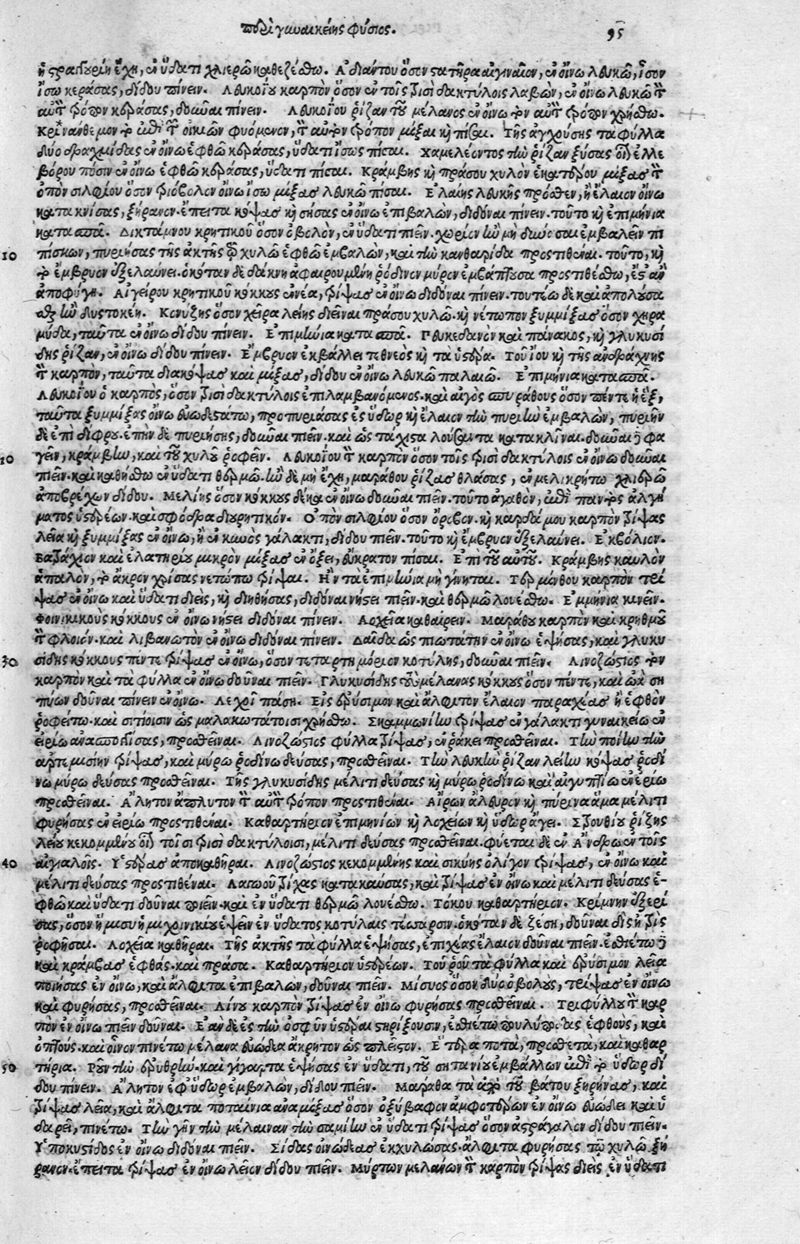 περὶ γυναικείης φύσιος. 95
ἢ στραγγουρίη ἔχῃ, ἐν ὕδατι χλιερῷ καθεζέσθω. Ἀδιάντου ὅσον στατῆρα αἰγιναῖον, ἐν οἴνῳ λευκῷ, ἴσον
ἴσῳ κεράσας, δίδου πίνειν. Λευκοΐου καρπὸν ὅσον ἐν τοῖς τρισὶ δακτύλοις λαβὼν, ἐν οἴνῳ λευκῷ τὸν
αὐτὸν τρόπον κεράσας, δοῦναι πίνειν. Λευκοΐου ῥίζαν τοῦ μέλανος ἐν οἴνῳ τὸν αὐτὸν τρόπον χρήσθω.
Κρίνανθεμον τὸ ἐπὶ τῶν οἰκιῶν φυόμενον, τὸν αὐτὸν τρόπον μίξαι καὶ πῖσαι. Τῆς ἀγχούσης τὰ φύλλα
δύο δραχμίδας ἐν οἴνῳ ἑφθῷ κεράσας, ὕδατι ἴσως πῖσαι. Χαμελέοντος τὴν ῥίζαν ξύσας ὡς ἐλλε
βόρου πόσιν ἐν οἴνῳ ἑφθῷ κεράσας, ὕδατι πῖσαι. Κράμβης καὶ πράσου χυλὸν ἑκατέρου μίξας τὸν
ὀπὸν σιλφίου ὅσον τριόβολον οἴνου ἴσῳ μίξας λευκῷ πῖσαι. Ἐλαίης λευκῆς πρόσθεν, ἢ ἔλαιον οἴνῳ
κατακνίσας, ξήρανον. ἔπειτα κόψας καὶ σήσας ἐν οἴνῳ ἐπιβαλὼν, διδόναι πίνειν. τοῦτο καὶ ἐπιμήνια
κατασπᾷ. Δικτάμνου κρητικοῦ ὅσον ὀβολὸν, ἐν ὕδατι πιεῖν. χωρίον ἢν μὴ δύνωνται ἐμβαλεῖν πι
10 πίσκων, πυριήσας τῆς ἀκτῆς τῷ χυλῷ ἑφθῷ ἐμβαλὼν, καὶ τὴν κανθαρίδα προστιθέναι. τοῦτο, καὶ
τὸ ἔμβρυον ἐξελαύνει. ὁκόταν δὲ δάκνῃ ἀφαιρουμένη ῥόδινον μύρον ἐμβάπτουσα προστιθέσθω, ἔστ' ἂν
ἀποφύγῃ. Αἰγείρου κρητικοῦ κόκκους ἐννέα, τρίψας ἐν οἴνῳ διδόναι πίνειν. τουτέῳ δὲ καὶ ἀπολύσα
σθαι ἢν δυστοκέῃ. Κονύζης ὅσον χεῖρα λείης διεῖναι πράσου χυλῷ. καὶ νέτωπον ξυμμίξας ὅσον χηρα
μύδα, ταῦτα ἐν οἴνῳ δίδου πίνειν. Ἐπιμήνια κατασπᾷ. Πευκέδανον καὶ πάνακος, καὶ γλυκυσί
δης ῥίζαν, ἐν οἴνῳ δίδου πίνειν. Ἔμβρυον ἐκβάλλει τεθνεὸς καὶ τὰ ὕστερα. Τοῦ ἴου καὶ τῆς ἀνδράχνης
τὸν καρπὸν, ταῦτα διακόψας καὶ μίξας, δίδου ἐν οἴνῳ λευκῷ παλαιῷ. Ἐπιμήνια κατασπᾷ.
Λευκοΐου ὁ καρπὸς, ὅσον τρισὶ δακτύλοις ἐπιλαμβανόμενος. καὶ αἰγὸς σπυράθους ὅσον πέντε ἢ ἓξ,
ταῦτα ξυμμίξας οἴνῳ εὐωδεστάτῳ, προπυριάσας ἐς ὕδωρ καὶ ἔλαιον τὸ πυριῆν ἐμβαλὼν, πυριῆν
δὲ ἐπὶ δίφρῳ. ἐπὴν δὲ πυριήσῃ, δοῦναι πιεῖν. καὶ ὡς τάχιστα λούσαντα κατακλῖναι. δοῦναι δὲ φα
20 γεῖν, κράμβην, καὶ τοῦ χυλοῦ ῥοφεῖν. Λευκοΐου τὸν καρπὸν ὅσον τοῖς τρισὶ δακτύλοις ἐν οἴνῳ δοῦναι
πιεῖν. καὶ καθήσθω ἐν ὕδατι θερμῷ. ἢν δὲ μὴ ἔχῃ, μαράθου ῥίζας θλάσας, ἐν μελικρήτῳ χλιερῷ
ἀποβρέχων δίδου. Μελίης ὅσον κόκκους δέκα ἐν οἴνῳ δοῦναι πιεῖν. τοῦτο ἀγαθὸν, ἐπὶ παντὸς ἀλγή
ματος ὑστερέων. καὶ σφόδρα διουρητικόν. Ὀπὸν σιλφίου ὅσον ὄροβον. καὶ καρδάμου καρπὸν τρίψας
λεῖα καὶ ξυμμίξας ἐν οἴνῳ, ἢ ἐν κυνὸς γάλακτι, δίδου πιεῖν. τοῦτο καὶ ἔμβρυον ἐξελαύνει. Ἐκβόλιον.
Βατράχιον καὶ ἐλατηρίου μικρὸν μίξας ἐν ὄξει, εὔκρατον πῖσαι. Ἐπὶ τοῦ αὐτοῦ. Κράμβης καυλὸν
ἁπαλὸν, τὸ ἄκρον χρίσας νετώπῳ τρίψαι. Ἢν τὰ ἐπιμήνια μὴ γίνηται. Τερμίνθου καρπὸν τρί
ψας ἐν οἴνῳ καὶ ὕδατι διεὶς, καὶ διηθήσας, διδόναι νήστει πιεῖν. καὶ θερμῷ λουέσθω. Ἐμμήνια κινεῖν.
Φοινικικοὺς κόκκους ἐν οἴνῳ νήστει διδόναι πίνειν. Λοχεῖα καθαίρειν. Μαράθου καρπὸν καὶ κρηθμοῦ
τὸν φλοιόν. καὶ λιβανωτὸν ἐν οἴνῳ διδόναι πίνειν. Δαΐδα ὡς πιωτάτην ἐν οἴνῳ ἑψήσας, καὶ γλυκυ
30 σίδης κόκκους πέντε τρίψας ἐν οἴνῳ, ὅσον τεταρτημόριον κοτύλης, δοῦναι πιεῖν. Λινοζώστιος τὸν
καρπὸν καὶ τὰ φύλλα ἐν οἴνῳ δοῦναι πιεῖν. Γλυκυσίδης τοὺς μέλανας κόκκους ὅσον πέντε, καὶ ὠὰ ση
πίων δοῦναι πίνειν ἐν οἴνῳ. Λεχοῖ πάσῃ. Εἰς ἐρύσιμον καὶ ἄλφιτον ἔλαιον παραχέας ἢ ἑφθὸν
ῥοφείτω. καὶ σιτίοισιν ὡς μαλακωτάτοισι χρήσθω. Σκαμμωνίην τρίψας ἐν γάλακτι γυναικείῳ ἐν
εἰρίῳ ἀνασπογγίσας, προσθεῖναι. Λινοζώστιος φύλλα τρίψας, ἐν ῥάκει προσθεῖναι. Τὴν ποίην τὴν
ἀρτεμισίην τρίψας, καὶ μύρῳ ῥοδίνῳ δεύσας, προσθεῖναι. Τὴν λευκὴν ῥίζαν λείην κόψας ῥοδί
νῳ μύρῳ δεύσας προσθεῖναι. Τῆς γλυκυσίδης μέλιτι δεύσας καὶ μύρῳ ῥοδίνῳ καὶ αἰγυπτίῳ ἐν εἰρίῳ
προσθεῖναι. Ἄλητον ἄπλυτον τὸν αὐτὸν τρόπον προστιθέναι. Αἰρῶν ἄλευρον καὶ πύρινα ἅμα μέλιτι
φυρήσας ἐν εἰρίῳ προστιθέναι. Καθαρτήριον ἐπιμηνίων καὶ λοχείων καὶ ὕδωρ ἄγει. Στρουθίου ῥίζης
λείης κεκομμένου ὡς τοῖσι τρισὶ δακτύλοισι, μέλιτι δεύσας προσθεῖναι. φύεται δὲ ἐν Ἄνδρῳ ἐν τοῖς
40 αἰγιαλοῖς. Ὑστέρας ἀποκαθῆραι. Λινοζώστιος κεκομμένης καὶ σικύης ὀλίγον τρίψας, ἐν οἴνῳ καὶ
μέλιτι δεύσας προστιθέναι. Λαγωοῦ τρίχας κατακαύσας, καὶ τρίψας ἐν οἴνῳ καὶ μέλιτι δεύσας ἑ-
φθῷ καὶ ὕδατι δοῦναι πιεῖν. καὶ ἐν ὕδατι θερμῷ λουέσθω. Τόκου καθαρτήριον. Κρίμνην ἐξερί
σας, ὅσον ἥμισυ μιχονικίου ἕψειν ἐν ὕδατος κοτύλαις τέσσαρσιν. ὁκόταν δὲ ζέσῃ, δοῦναι δὶς ἢ τρὶς
ῥοφῆσαι. Λοχεῖα καθῆραι. Τῆς ἀκτῆς τὰ φύλλα ἑψήσας, ἐπιχέας ἔλαιον δοῦναι πιεῖν. ἐσθιέτω δὲ
καὶ κράμβας ἑφθάς. καὶ πράσα. Καθαρτήριον ὑστερέων. Τοῦ ῥοῦ τὰ φύλλα καὶ ἐρύσιμον λεῖα
ποιήσας ἐν οἴνῳ, καὶ ἄλφιτα ἐπιβαλὼν, δοῦναι πιεῖν. Μίσυος ὅσον δύο ὀβολοὺς, τρίψας ἐν οἴνῳ
καὶ φυρήσας, προσθεῖναι. Λίνου καρπὸν τρίψας ἐν οἴνῳ φυρήσας προσθεῖναι. Τριφύλλου τὸν καρ
πὸν ἐν οἴνῳ πιεῖν δοῦναι. Ἐὰν δὲ ἐς τὴν ὀσφὺν ὑστέραι στηρίξουσιν, ἐσθιέτω πουλύποδας ἑφθοὺς, καὶ
ὀπτούς. καὶ οἶνον πινέτω μέλανα εὐώδεα ἄκρητον ὡς πλεῖστον. Ἕτερα ποτὰ, πρόσθετα, καὶ καθαρ
50 τήρια. Ῥοῦν τὴν ἐρυθρὴν. καὶ γίγαρτα ἑψήσας ἐν ὕδατι, τοῦ σητανίου ἐμβάλλων ἐπὶ τὸ ὕδωρ δί
δου πίνειν. Ἄλητον ἐφ' ὕδωρ ἐμβαλὼν, δίδου πιεῖν. Μάραθα τὰ ἀπὸ τοῦ βάτου ξηρήνας, καὶ
τρίψας λεῖα, καὶ ἄλφιτα ποταίνια ἀναμίξας ὅσον ὀξύβαφον ἀμφοτέρων ἐν οἴνῳ εὐώδει καὶ ὑ
δαρεῖ, πινέτω. Τὴν γῆν τὴν μέλαιναν τὴν σαμίην ἐν ὕδατι τρίψας ὅσον ἀστράγαλον δίδου πιεῖν.
Ὑποκυστίδος ἐν οἴνῳ διδόναι πιεῖν. Σίδας οἰνώδεας ἐκχυλώσας. ἄλφιτα φυρήσας τῷ χυλῷ ξή
ρανον. ἔπειτα τρίψας ἐν οἴνῳ λεῖον δίδου πιεῖν. Μύρτων μελάνων τὸν καρπὸν τρίψας διεὶς ἐν ὕδατι